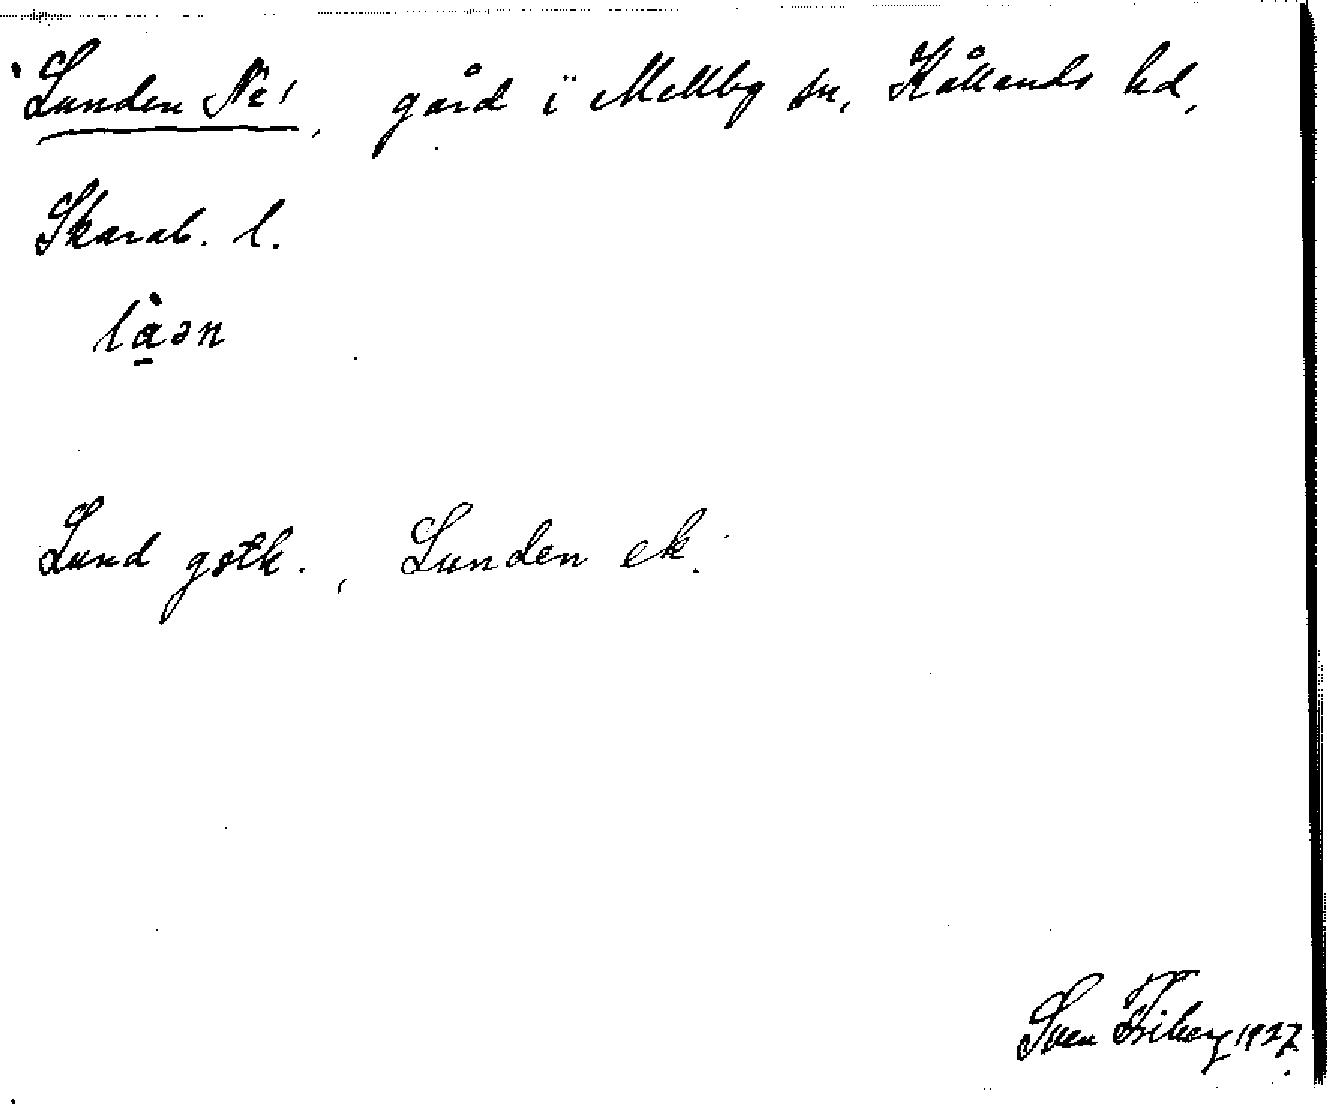 Lunden № 1, gård i Mellby sn, Kållands hd,
Skarab. l.
là̱ən
Lund gstk., Lunden ek.
Sven Friberg 1927.